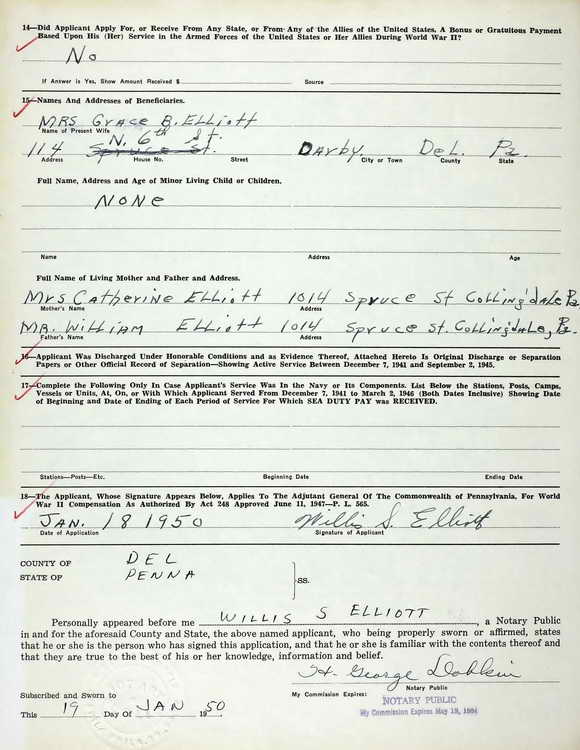 14—Did Applicant Apply For, or Receive From Any State, or From Any of the Allies of the United States, A Bonus or Gratuitous Payment
Based Upon His (Her) Service in the Armed Forces of the United States or Her Allies During World War II?
No
If Answer is Yes, Show Amount Received $ Source
15—Names And Addresses of Beneficiaries.
MRS Grace B. Elliott
Name of Present Wife
N. 6th St.
114 Spruce St. Darby Del. Pa.
Address House No. Street City or Town County State
Full Name, Address and Age of Minor Living Child or Children.
NONE
Name Address Age
Full Name of Living Mother and Father and Address.
Mrs Catherine Elliott 1014 Spruce St Collingdale Pa
Mother's Name Address
MR. William Elliott 1014 Spruce St. Collingdale, Pa.
Father's Name Address
16—Applicant Was Discharged Under Honorable Conditions and as Evidence Thereof, Attached Hereto Is Original Discharge or Separation
Papers or Other Official Record of Separation—Showing Active Service Between December 7, 1941 and September 2, 1945.
17—Complete the Following Only In Case Applicant's Service Was In the Navy or Its Components. List Below the Stations, Posts, Camps,
Vessels or Units, At, On, or With Which Applicant Served From December 7, 1941 to March 2, 1946 (Both Dates Inclusive) Showing Date
of Beginning and Date of Ending of Each Period of Service For Which SEA DUTY PAY was RECEIVED.
Stations—Posts—Etc. Beginning Date Ending Date
18—The Applicant, Whose Signature Appears Below, Applies To The Adjutant General Of The Commonwealth of Pennsylvania, For World
War II Compensation As Authorized By Act 248 Approved June 11, 1947—P. L. 565.
JAN. 18 1950 Willis S. Elliott
Date of Application Signature of Applicant
COUNTY OF DEL
STATE OF PENNA
SS.
Personally appeared before me WILLIS S ELLIOTT, a Notary Public
in and for the aforesaid County and State, the above named applicant, who being properly sworn or affirmed, states
that he or she is the person who has signed this application, and that he or she is familiar with the contents thereof and
that they are true to the best of his or her knowledge, information and belief.
George
Notary Public
Subscribed and Sworn to My Commission Expires:
NOTARY PUBLIC
This 19 Day Of JAN 1950.
My Commission Expires May